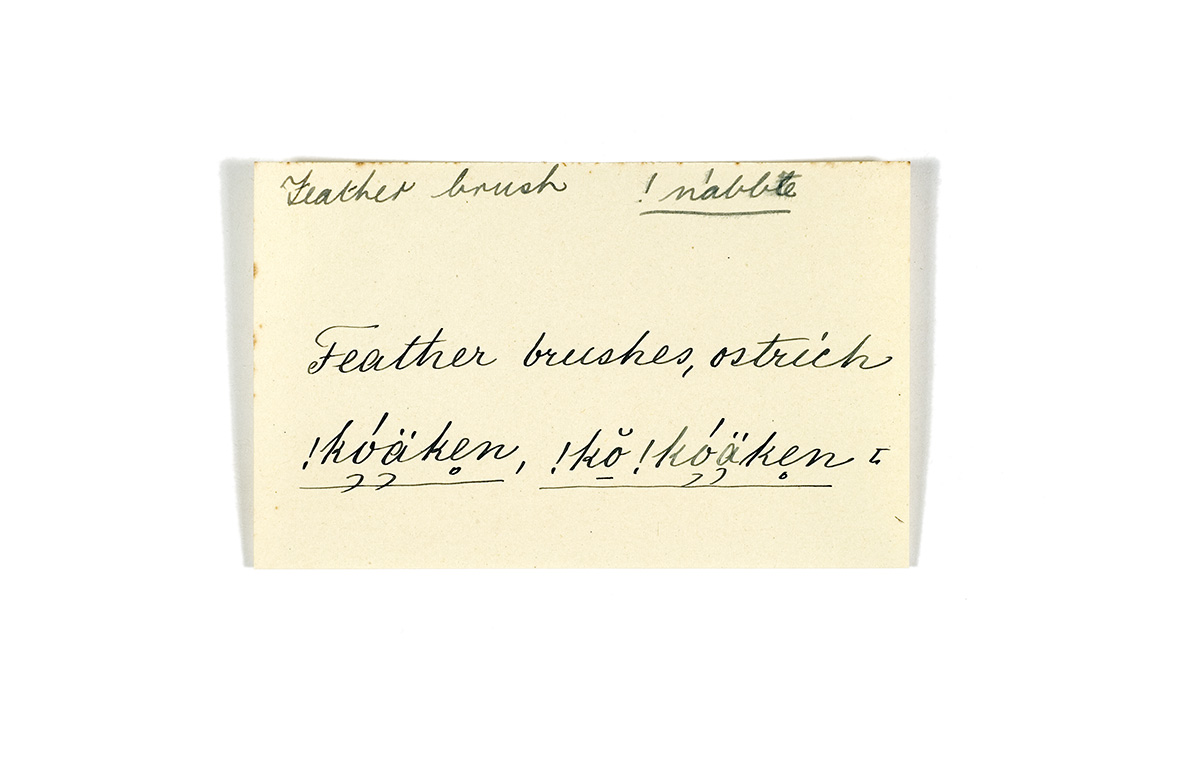 Feather brush ! nábbte
Feather brushes, ostrich
!kóä̤ken̥, !kŏ̱!kóä̤ken̥